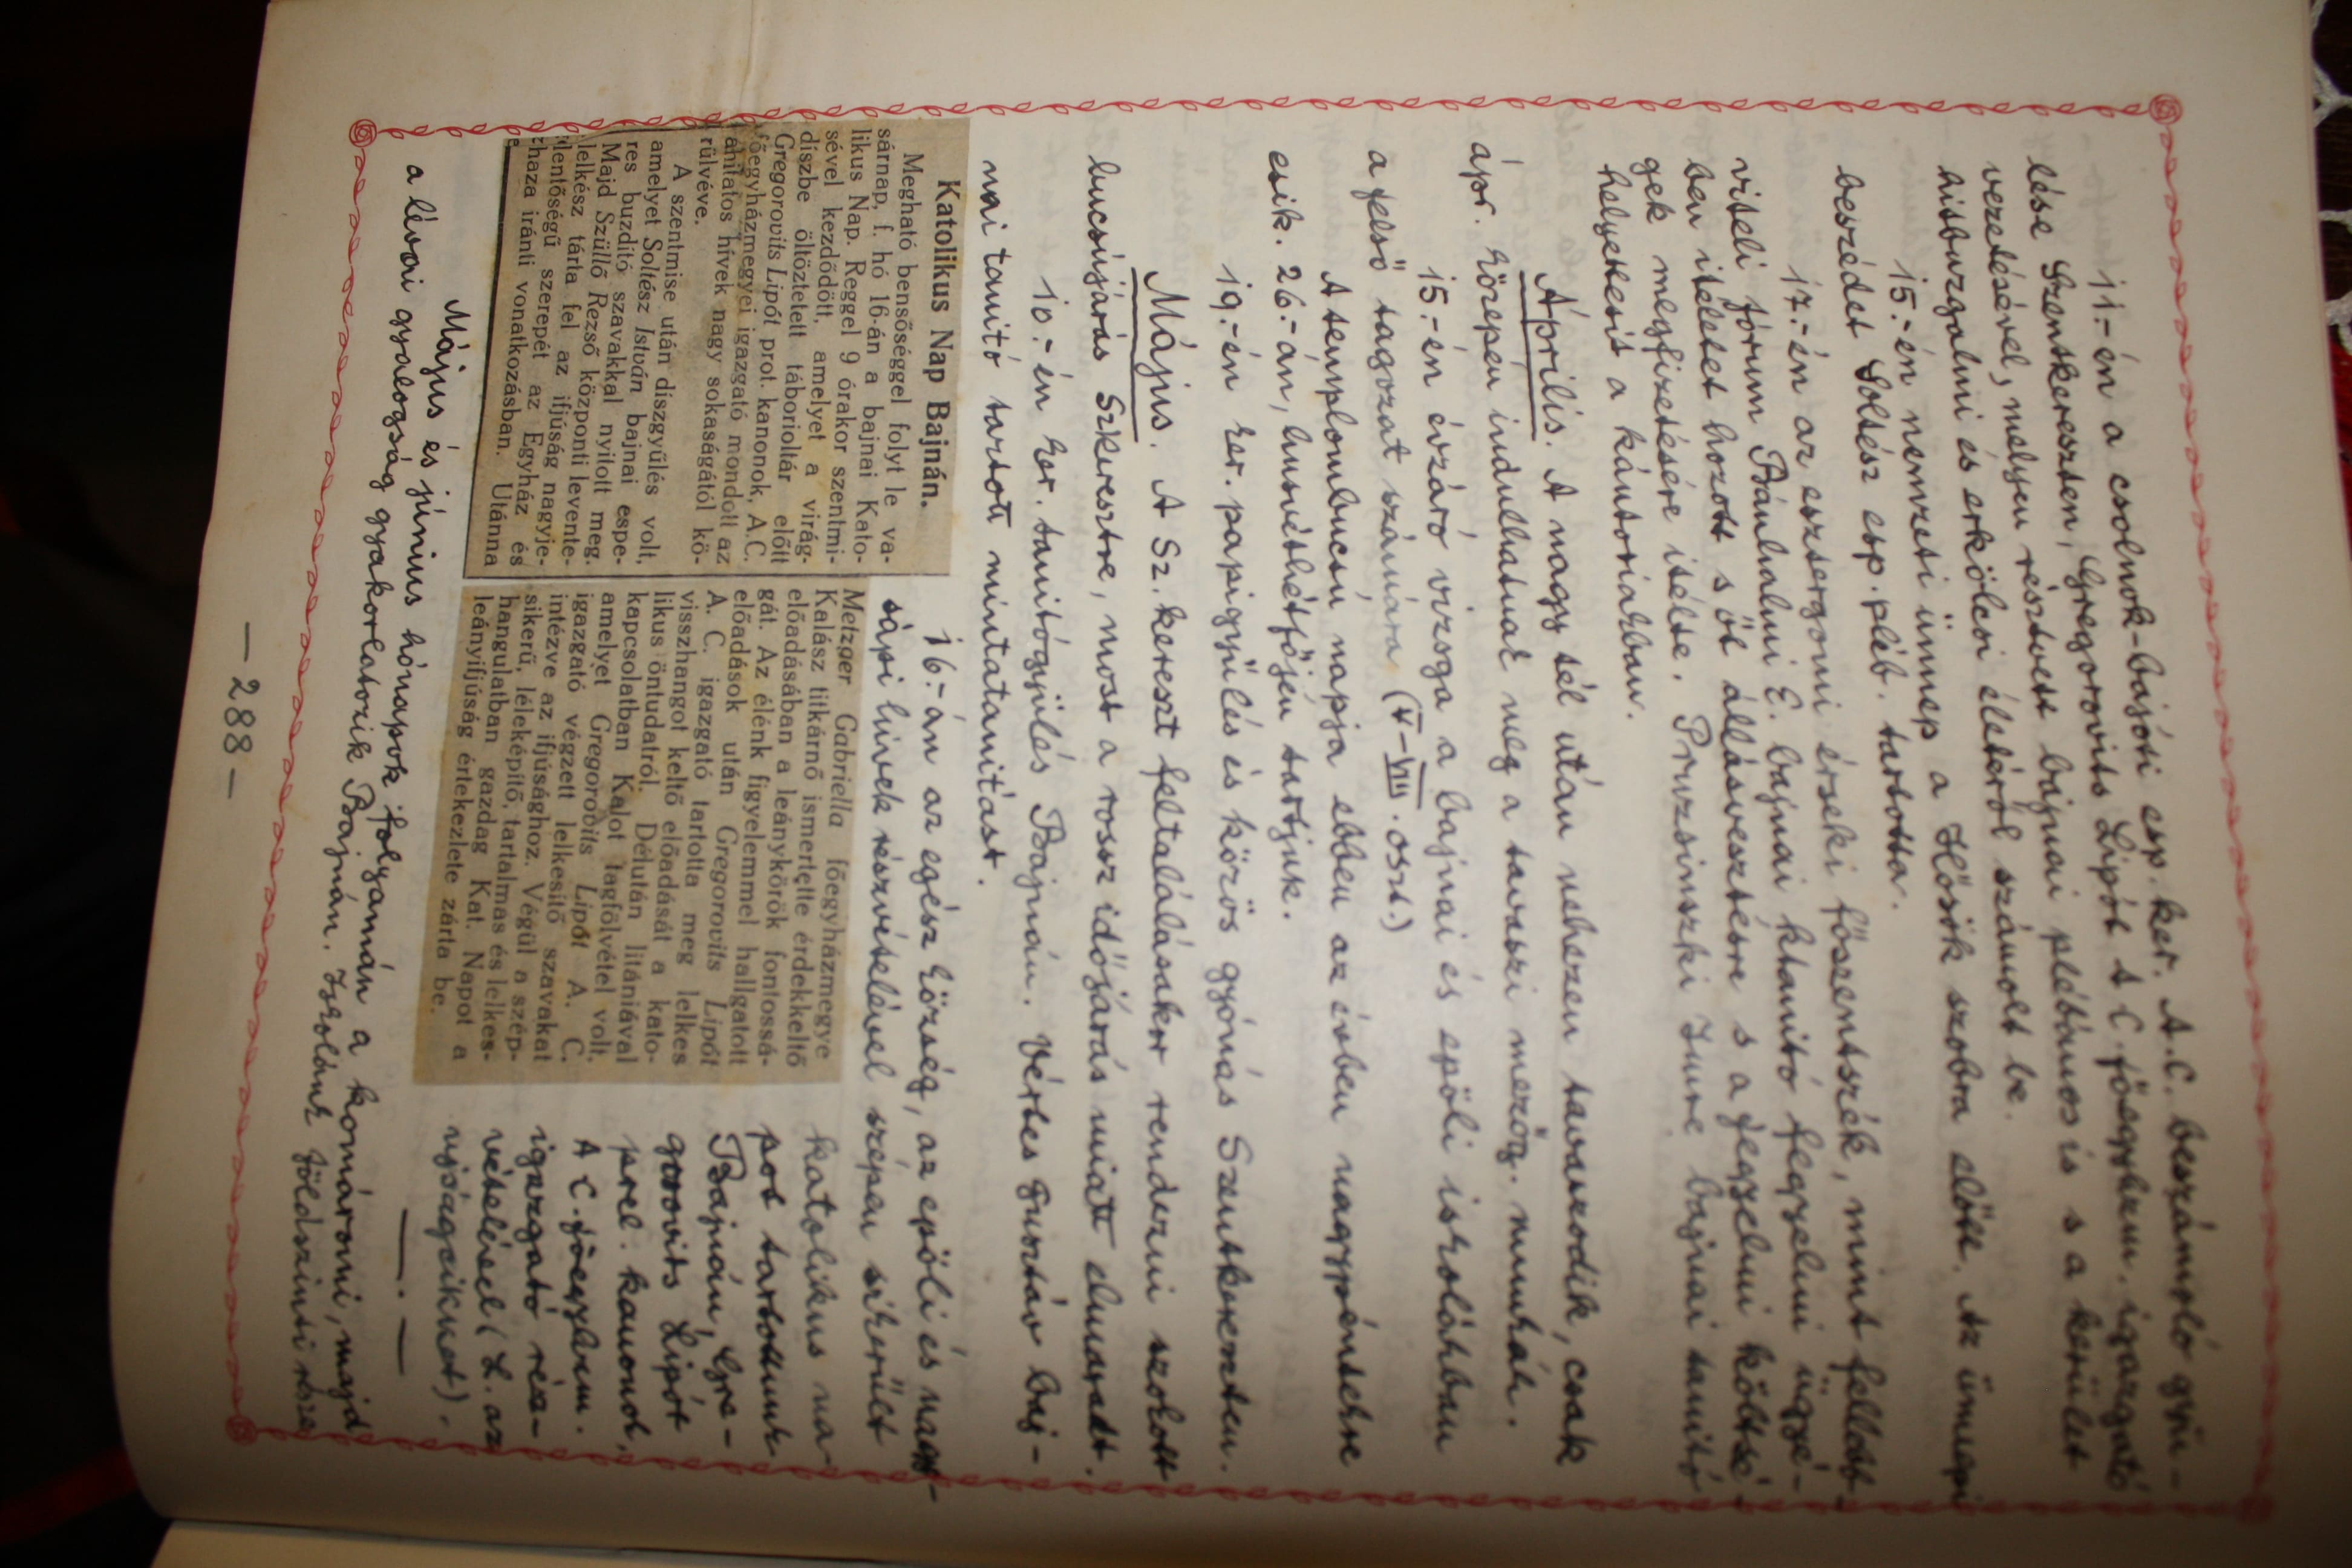 11.-én a csolnok-bajóti esp. ker. A.C. beszámoló gyü-
lése Szentkereszten, Gregorovits Lipót A C. főegyházm. igazgató
vezetésével, melyen résztvett bajnai plébános is s a kerület
hitbuzgalmi és erkölcsi életéről számolt be.
15.-én nemzeti ünnep a Hősök szobra előtt. Az ünnepi
beszédet Soltész esp. pléb. tartotta.
17.-én az esztergomi érseki főszentszék, mint fellebb-
viteli fórum Bánhalmi E. bajnai ktanító fegyelmi ügyé-
ben itéletet hozott s őt állásvesztésre s a fegyelmi költsé-
gek megfizetésére itélte. Pruzsinszki Imre bajnai tanító
helyettesit a kántoriakban.
Április. A nagy tél után nehezen tavaszodik, csak
ápr. közepén indulhatnak meg a tavaszi mezőg. munkák.
15.-én évzáró vizsga a bajnai és epöli iskolákban
a felső tagozat számára (V-VIII. oszt.)
A templombucsu napja ebben az évben nagypéntekre
esik. 26.-án, husvéthétfőjén tartjuk.
19.-én ker. papigyülés és közös gyónás Szentkereszten.
Május. A Sz. kereszt feltalálásakor rendezni szokott
bucsújárás Szkeresztre, most a rossz időjárás miatt elmaradt.
10.-én ker. tanítógyülés Bajnán. Vértes Gusztáv baj-
nai tanító tartott mintatanitást.
16.-án az egész község, az epöli és nagy-
sápi hivek részvételével szépen sikerült
katolikus na-
pot tartottunk
Bajnán, Gre-
gorovits Lipót
prel. kanonok,
A C. főegyházm.
igazgató rész-
vételével (L. az
ujságcikket).
Katolikus Nap Bajnán.
Megható bensőséggel folyt le va-
sárnap, f. hó 16-án a bajnai Kato-
likus Nap. Reggel 9 órakor szentmi-
sével kezdődött, amelyet a virág-
díszbe öltöztetett tábori oltár előtt
Gregorovits Lipót prot. kanonok, A.C.
főegyházmegyei igazgató mondott az
áhítatos hívek nagy sokaságától kö-
rülvéve.
A szentmise után díszgyülés volt,
amelyet Soltész István bajnai espe-
res buzdító szavakkal nyitott meg.
Majd Szüllő Rezső központi levente-
lelkész tárta fel az ifjúság nagyje-
lentőségű szerepét az Egyház és
haza iránti vonatkozásban. Utánna
Metzger Gabriella főegyházmegye
Kalász titkárnő ismertette érdekkeltő
előadásában a leánykörök fontossá-
gát. Az élénk figyelemmel hallgatott
előadások után Gregorovits Lipót
A. C. igazgató tartotta meg lelkes
visszhangot keltő előadását a kato-
likus öntudatról. Délután litániával
kapcsolatban Kalot tagfölvétel volt,
amelyet Gregorovits Lipót A. C.
igazgató végzett lelkesítő szavakat
intézve az ifjúsághoz. Végül a szép-
sikerű, léleképítő, tartalmas és lelkes-
hangulatban gazdag Kat. Napot a
leányifjúság értekezlete zárta be.
Május és június hónapok folyamán a komáromi, majd
a lévai gyalogság gyakorlatozik Bajnán. Iskolánk földszinti része
- 288 -